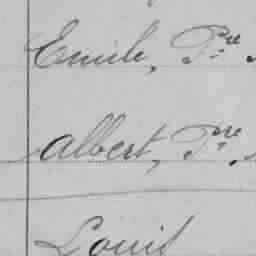 Emile, Pre
Albert, Pre
Louis